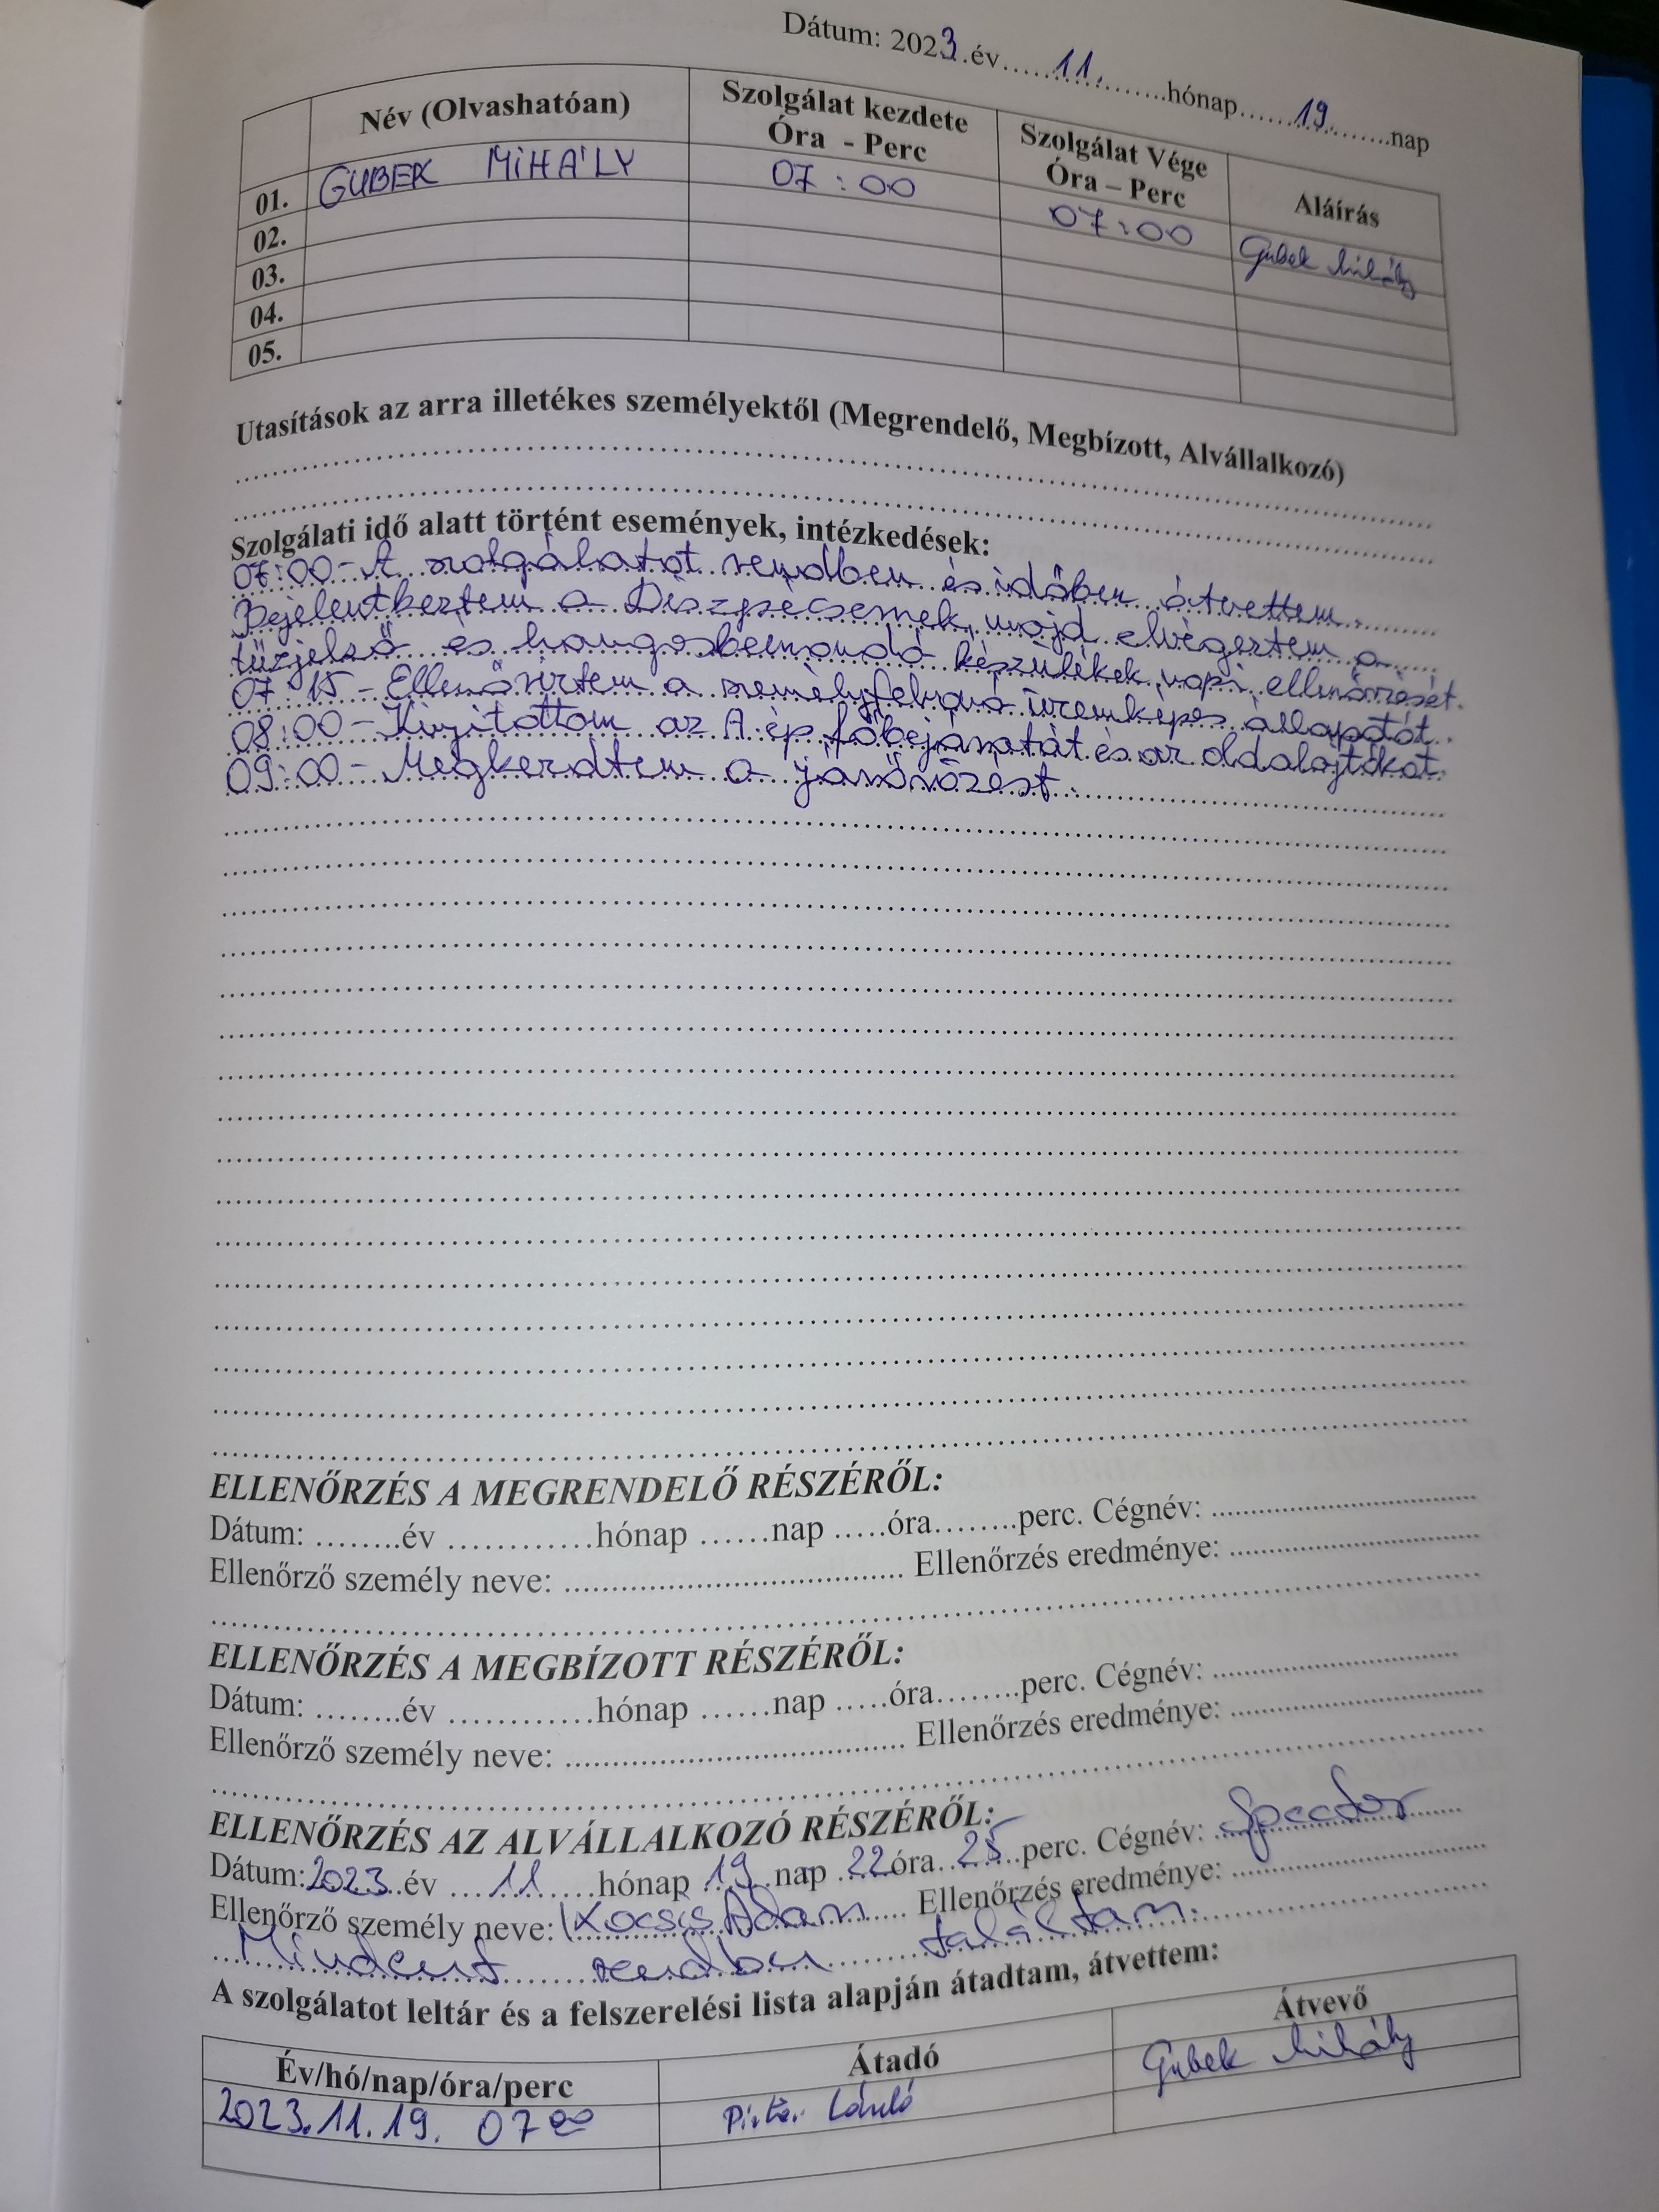 Dátum: 2023.év......11.........hónap......19........nap
Név (Olvashatóan) Szolgálat kezdete Óra - Perc Szolgálat Vége Óra – Perc Aláírás
01. GUBEK MIHÁLY 07:00 07:00 Gubek Mihály
02.
03.
04.
05.
Utasítások az arra illetékes személyektől (Megrendelő, Megbízott, Alvállalkozó)
Szolgálati idő alatt történt események, intézkedések:
07:00-A szolgálatot rendben és időben átvettem.
Bejelentkeztem a Diszpécsernek, majd elvégeztem a
tűzjelző és hangosbemondó készülékek napi ellenőrzését.
07:15-Ellenőriztem a személyfelvonó üzemképes állapotát.
08:00-Kinyitottam az A ép. főbejáratát és az oldalajtókat.
09:00-Megkezdtem a járőrözést.
ELLENŐRZÉS A MEGRENDELŐ RÉSZÉRŐL:
Dátum: ........év .............hónap ......nap .....óra........perc. Cégnév: ..............................
Ellenőrző személy neve: ..................................... Ellenőrzés eredménye: ............................
ELLENŐRZÉS A MEGBÍZOTT RÉSZÉRŐL:
Dátum: ........év .............hónap ......nap .....óra........perc. Cégnév: ..............................
Ellenőrző személy neve: ..................................... Ellenőrzés eredménye: ............................
ELLENŐRZÉS AZ ALVÁLLALKOZÓ RÉSZÉRŐL:
Dátum:2023.év ....11......hónap .19..nap .22óra..25...perc. Cégnév:
Ellenőrző személy neve: Kocsis Ádám Ellenőrzés eredménye: ............................
Mindent rendben találtam.
A szolgálatot leltár és a felszerelési lista alapján átadtam, átvettem:
Év/hó/nap/óra/perc Átadó Átvevő
2023.11.19. 07 00 László Gubek Mihály